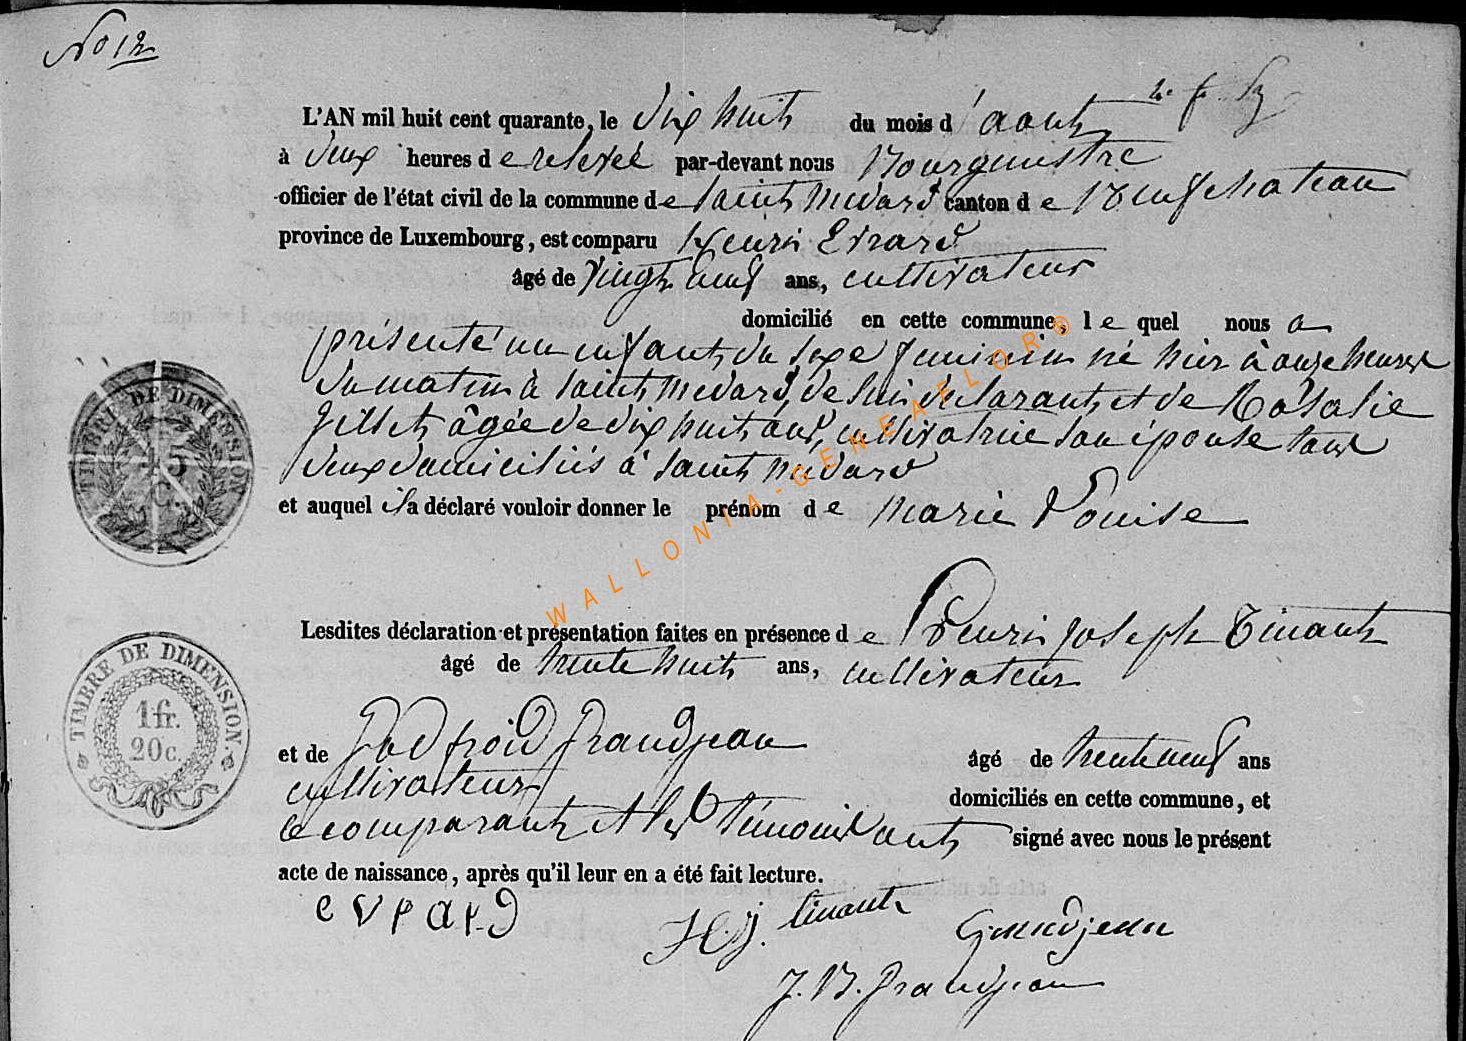 No 12
L'AN mil huit cent quarante, le dix huit du mois d'aout
à deux heures de relevée par-devant nous Bourgmestre
officier de l'état civil de la commune de Saint Medard canton de Neufchateau
province de Luxembourg, est comparu Henri Evrard
âgé de vingt neuf ans, cultivateur
domicilié en cette commune, le quel nous a
présenté un enfant du sexe feminin né hier à onze heures
du matin à Saint Medard, de lui declarant et de Rosalie
Gillet âgée de dix huit ans, cultivatrice son épouse tous
deux domiciliés à Saint Médard
et auquel il a déclaré vouloir donner le prénom de Marie Louise
Lesdites déclaration et présentation faites en présence de Henri Joseph Tinant
âgé de trente huit ans, cultivateur
et de Godfroid Grandjean âgé de trente neuf ans
cultivateur domiciliés en cette commune, et
le comparant et les témoins ont signé avec nous le présent
acte de naissance, après qu'il leur en a été fait lecture.
evrard H. J. tinant Grandjean
J. B. Grandjean
TIMBRE DE DIMENSION
45 C.
TIMBRE DE DIMENSION.
1 fr.
20 c.
WALLONIA-GENEAFLOR®